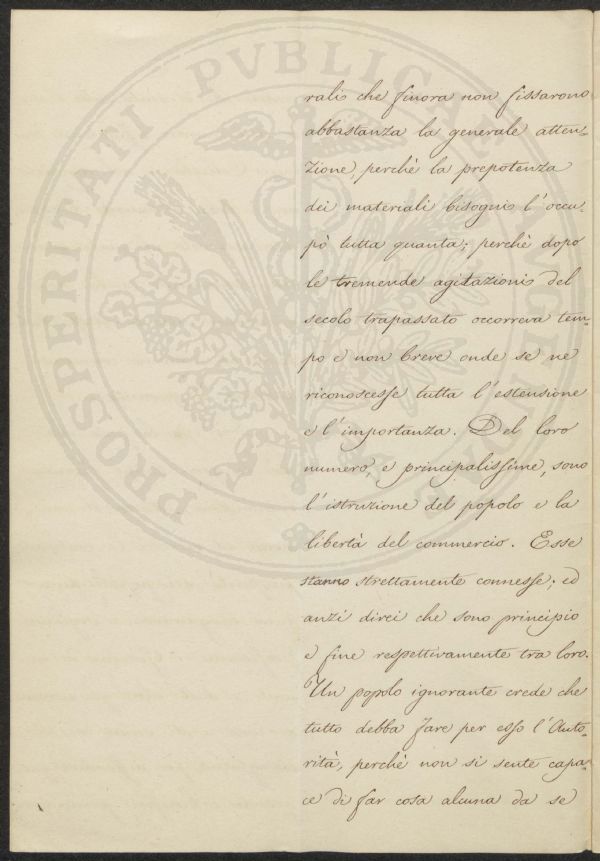 rali che finora non fissarono
abbastanza la generale atten-
zione, perchè la prepotenza
dei materiali bisogni l'occu-
pò tutta quanta; perchè dopo
le tremende agitazioni del
secolo trapassato occorreva tem-
po e non breve onde se ne
riconoscesse tutta l'estensione
e l'importanza. Del loro
numero, e principalissime, sono
l'istruzione del popolo e la
libertà del commercio. Esse
stanno strettamente connesse; ed
anzi direi che sono principio
e fine respettivamente tra loro.
Un popolo ignorante crede che
tutto debba fare per esso l'Auto-
rità, perchè non si sente capa-
ce di far cosa alcuna da se
PROSPERITATI PVBLICAE